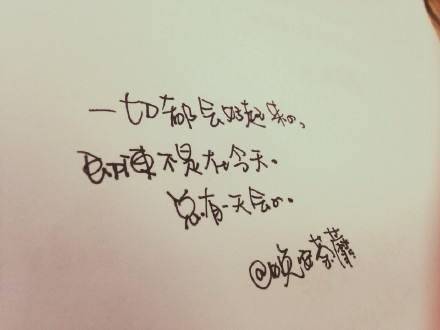 一切都会好起来的，
即便不是在今天。
总有一天会的。
@晚安荼蘼